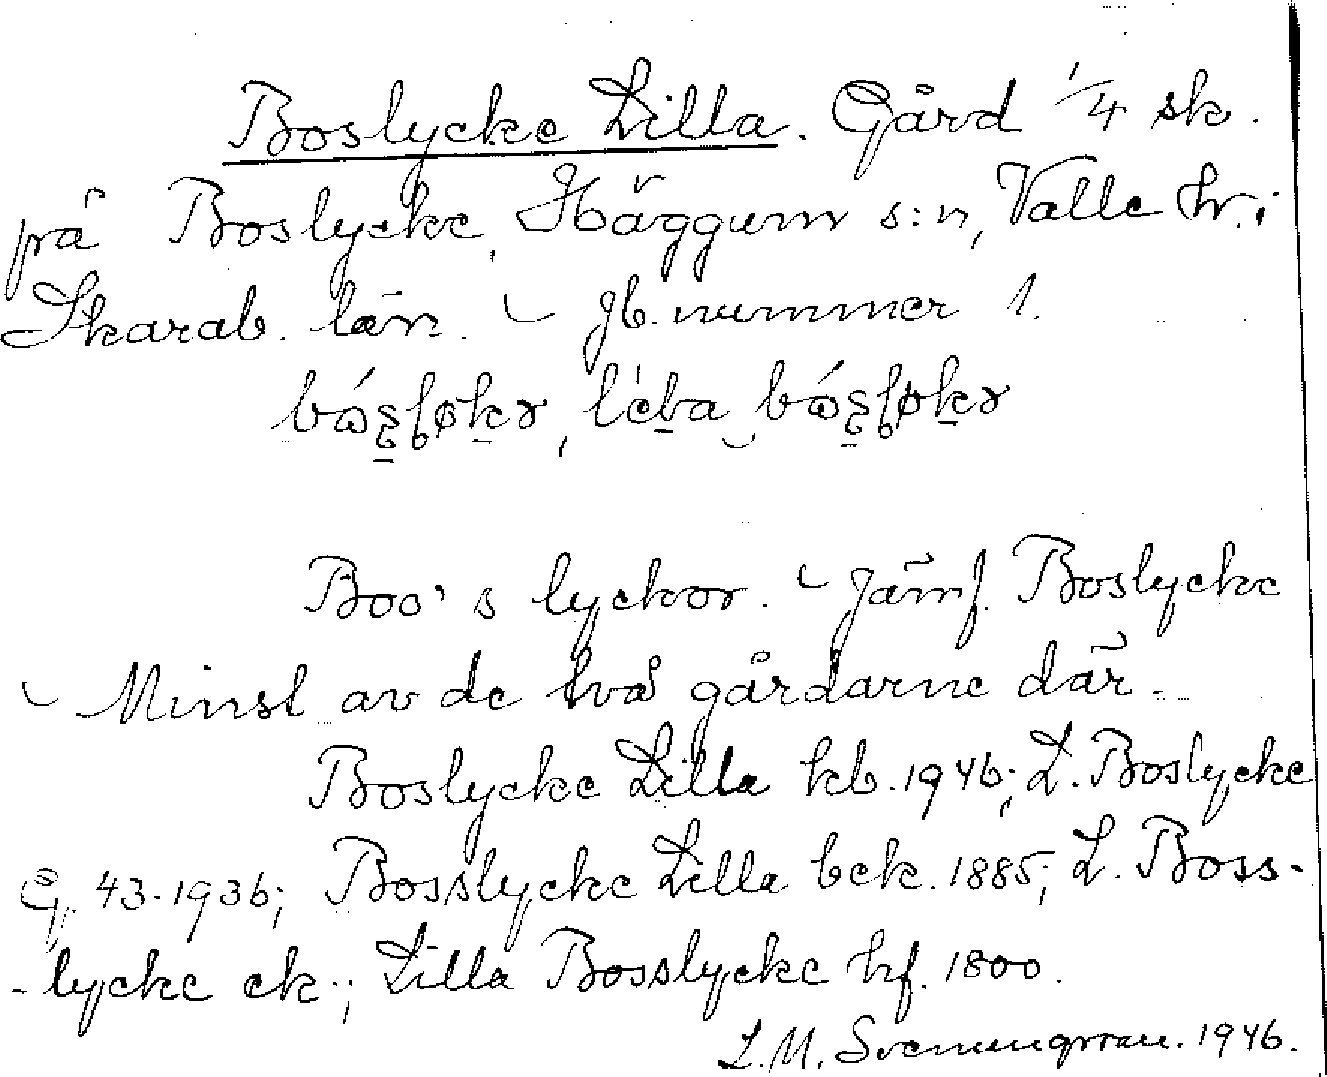 Boslycke Lilla. Gård 1/4 sk.
på Boslycke, Häggum s:n, Valle hr. i
Skarab. län. – Jb. nummer 1.
Boo's lyckor. – Jämf. Boslycke
– Minst av de två gårdarne där.
Boslycke Lilla kb. 1946; L. Boslycke
G. 43. 1936; Bosslycke Lilla bek. 1885; L. Boss-
-lycke ek.; Lilla Bosslycke hf. 1800.
L. M. Svenungsson. 1946.